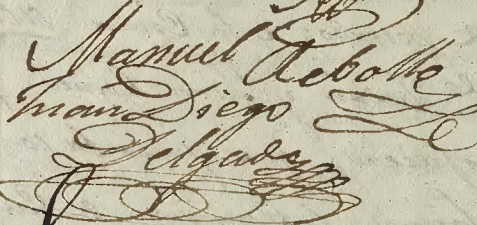 Manuel Rebolle
Juan Diego
Delgado